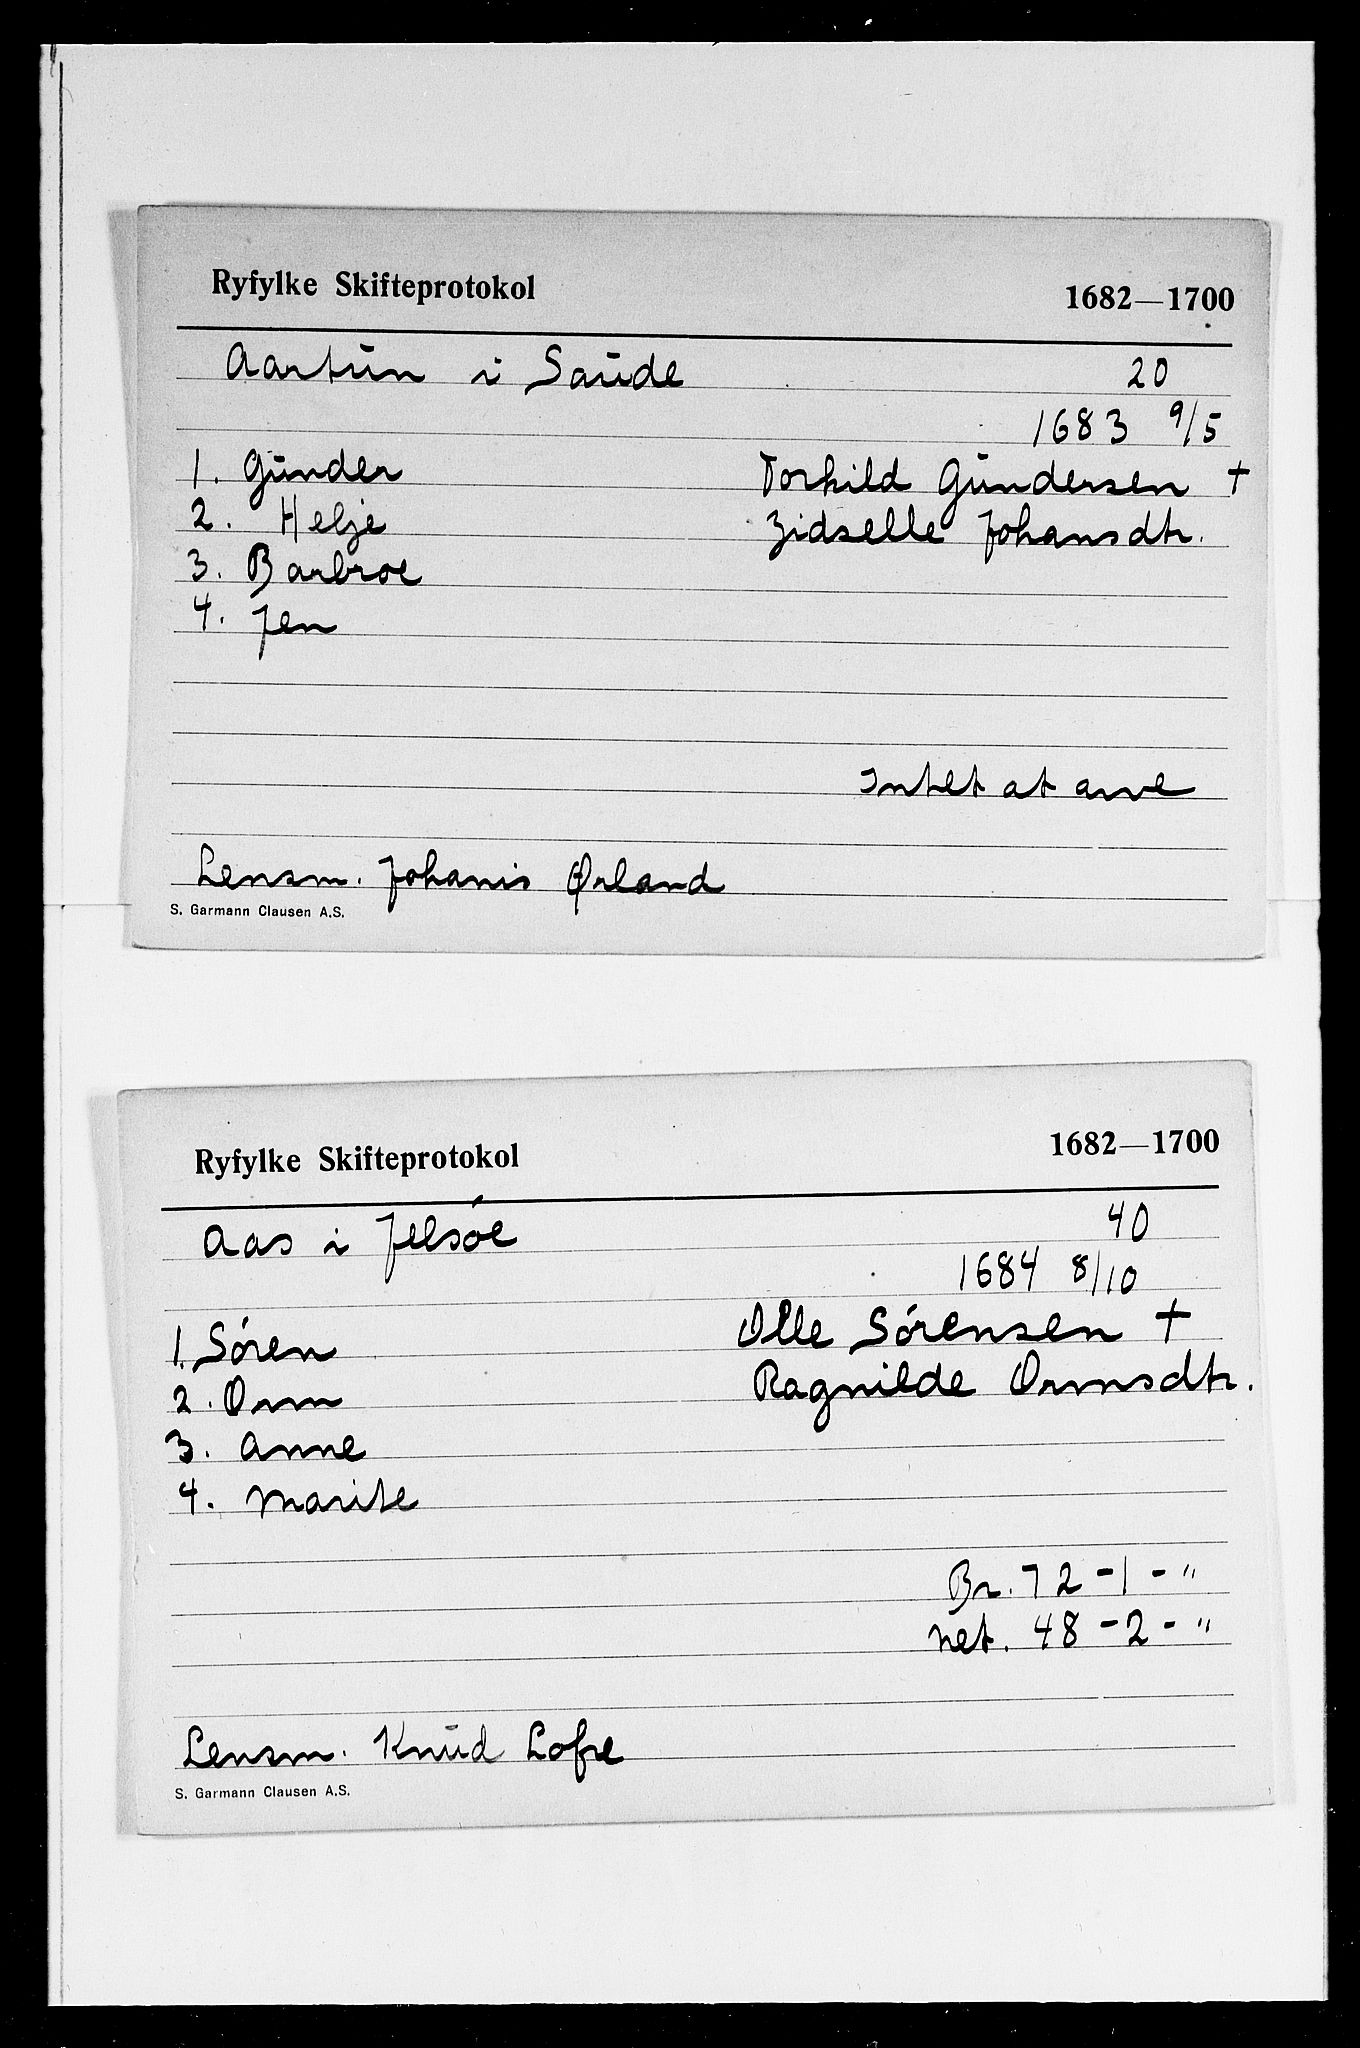 Ryfylke Skifteprotokol 1682—1700
Aartun i Saude 20
1683 9/5
1. Gunder Torkild Gundersen †
2. Helje Zidselle Johansdtr.
3. Barbroe
4. Jen
Intet at arve
Lensm. Johanis Ørland
S. Garmann Clausen A.S.
Ryfylke Skifteprotokol 1682—1700
Aas i Jelsöe 40
1684 8/10
1. Sören Olle Sörensen †
2. Orm Ragnilde Ormsdtr.
3. Anne
4. Marite
Br. 72-1-"
net. 48-2-"
Lensm. Knud Lofre
S. Garmann Clausen A.S.